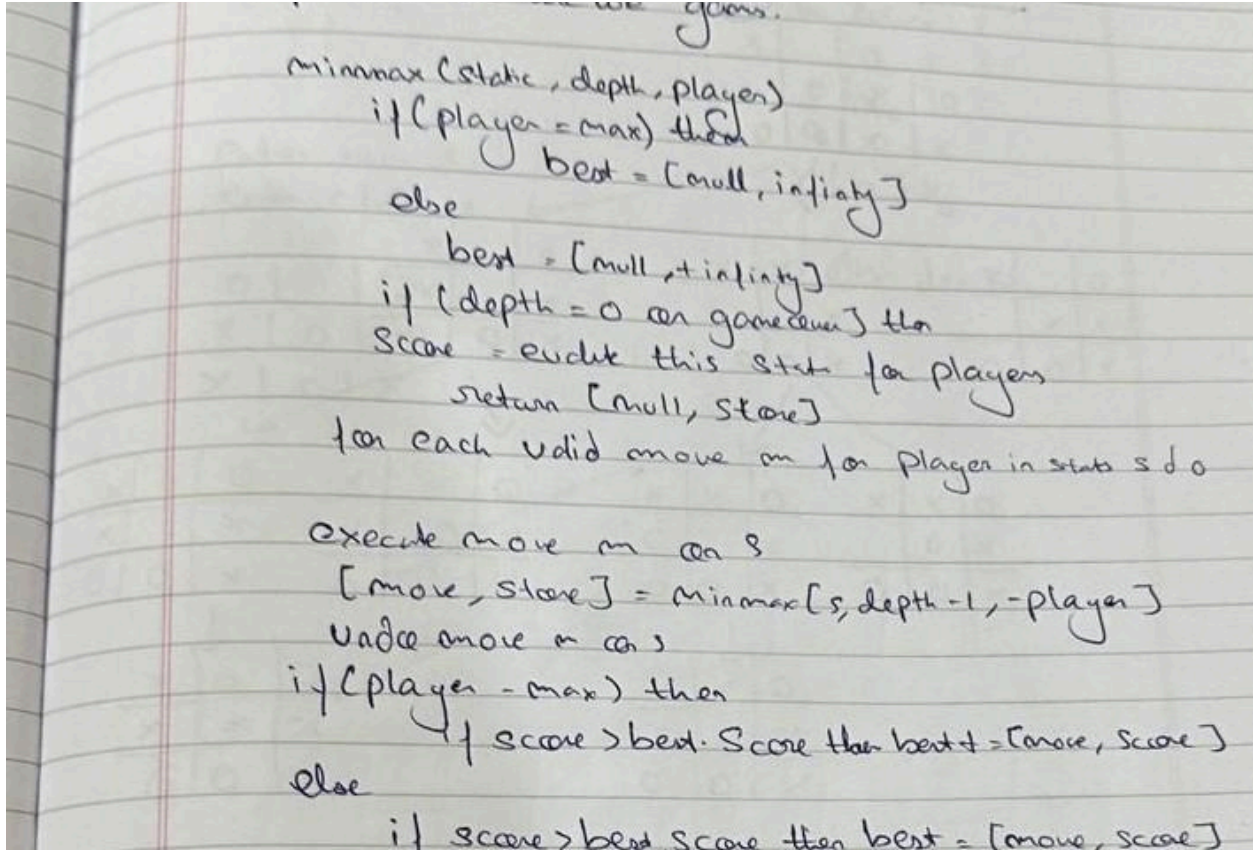 we games.
minmax (static, depth, player)
if (player = max) then
best = [null, infinty]
else
best = [null, + infinty]
if (depth = 0 or gameover] then
Score = this state for player
return [null, Score]
for each valid move m for player in state s do
execute move m on S
[move, score] = minmax[s, depth -1, -player]
move m on s
if (player - max) then
if score > best. Score then best = [move, score]
else
if score > best score then best = [move, score]